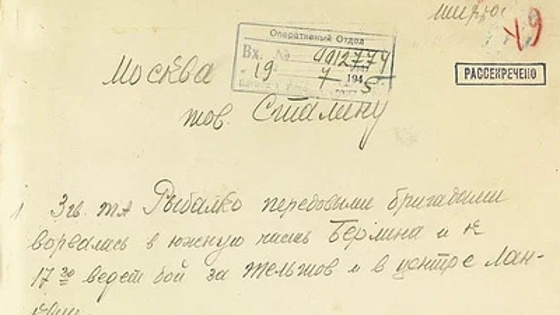 Оперативный Отдел
Вх. №
19 7 194 5
РАССЕКРЕЧЕНО
Москва
тов. Сталину
1 3 гв. ТА Рыбалко передовыми бригадами
ворвалась в южную часть Берлина и к
17 30 ведет бой за Тельтов и в центре Лан-